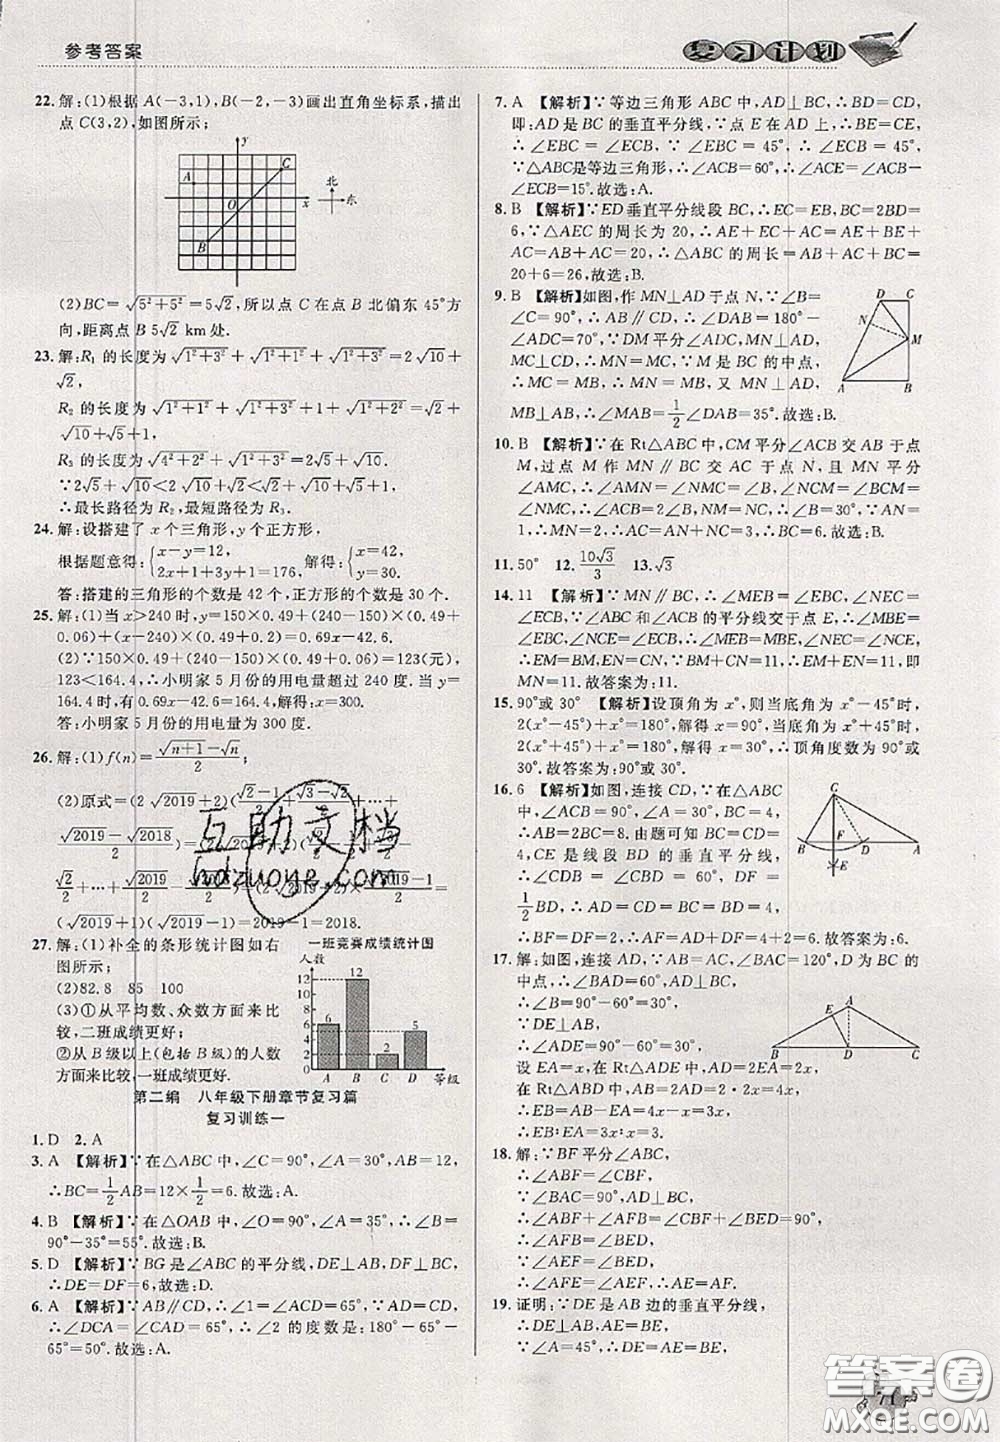 参考答案
复习计划
22. 解:(1)根据 A(-3,1),B(-2,-3)画出直角坐标系,描出
点 C(3,2),如图所示;
y
A
C
O
x
B
北
东
(2)BC=√(5²+5²)=5√2,所以点 C 在点 B 北偏东 45°方
向,距离点 B 5√2 km处.
23. 解:R₁ 的长度为 √(1²+3²)+√(1²+1²)+√(1²+3²)=2√10+
√2,
R₂ 的长度为 √(1²+1²)+√(1²+3²)+1+√(1²+2²)=√2+
√10+√5+1,
R₃ 的长度为√(4²+2²)+√(1²+3²)=2√5+√10.
∵2√5+√10<2√10+√2<√2+√10+√5+1,
∴最长路径为 R₂,最短路径为 R₃.
24. 解:设搭建了 x 个三角形,y 个正方形,
根据题意得:{x-y=12, 2x+1+3y+1=176, 解得:{x=42, y=30.
答:搭建的三角形的个数是 42 个,正方形的个数是 30 个.
25. 解:(1)当 x>240 时,y=150×0.49+(240-150)×(0.49+
0.06)+(x-240)×(0.49+0.2)=0.69x-42.6.
(2)∵150×0.49+(240-150)×(0.49+0.06)=123(元),
123<164.4,∴小明家 5 月份的用电量超过 240 度.当 y=
164.4 时,有 0.69x-42.6=164.4,解得:x=300.
答:小明家 5 月份的用电量为 300 度.
26. 解:(1)f(n)=(√(n+1)-√n)/2;
(2)原式=(2√2019+2)(
√2019-√2018
27. 解:(1)补全的条形统计图如右
图所示;
(2)82.8 85 100
(3)①从平均数、众数方面来比
较,二班成绩更好;
②从 B 级以上(包括 B 级)的人数
方面来比较,一班成绩更好.
一班竞赛成绩统计图
人数
12
10
8
6
4
2
0
6
12
2
5
A B C D 等级
第二编 八年级下册章节复习篇
复习训练一
1. D 2. A
3. A 【解析】∵在△ABC 中,∠C=90°,∠A=30°,AB=12,
∴BC=1/2AB=12×1/2=6.故选:A.
4. B 【解析】∵在△OAB 中,∠O=90°,∠A=35°,∴∠B=
90°-35°=55°.故选:B.
5. D 【解析】∵BG是∠ABC的平分线,DE⊥AB,DF⊥BC,
∴DE=DF=6.故选:D.
6. A 【解析】∵AB∥CD,∴∠1=∠ACD=65°,∵AD=CD,
∴∠DCA=∠CAD=65°,∴∠2 的度数是:180°-65°-
65°=50°.故选:A.
7. A 【解析】∵等边三角形 ABC 中,AD⊥BC,∴BD=CD,
即:AD 是 BC 的垂直平分线,∵点 E 在 AD 上,∴BE=CE,
∴∠EBC=∠ECB,∵∠EBC=45°,∴∠ECB=45°,
∵△ABC是等边三角形,∴∠ACB=60°,∴∠ACE=∠ACB-
∠ECB=15°.故选:A.
8. B 【解析】∵ED垂直平分线段 BC,∴EC=EB,BC=2BD=
6,∵△AEC 的周长为 20,∴AE+EC+AC=AE+BE+
AC=AB+AC=20,∴△ABC 的周长=AB+AC+BC=
20+6=26,故选:B.
9. B 【解析】如图,作 MN⊥AD 于点 N,∵∠B=
∠C=90°,∴AB∥CD,∴∠DAB=180°-
∠ADC=70°,∵DM 平分∠ADC,MN⊥AD,
MC⊥CD,∴MN=MC,∵M 是 BC 的中点,
∴MC=MB,∴MN=MB,又 MN⊥AD,
MB⊥AB,∴∠MAB=1/2∠DAB=35°.故选:B.
D C
N
M
A B
10. B 【解析】∵在 Rt△ABC 中,CM平分∠ACB 交 AB 于点
M,过点 M 作 MN∥BC 交 AC 于点 N,且 MN 平分
∠AMC,∴∠AMN=∠NMC=∠B,∠NCM=∠BCM=
∠NMC,∴∠ACB=2∠B,NM=NC,∴∠B=30°,∵AN=
1,∴MN=2,∴AC=AN+NC=3,∴BC=6.故选:B.
11. 50° 12. 10√3/3 13. √3
14. 11 【解析】∵MN∥BC,∴∠MEB=∠EBC,∠NEC=
∠ECB,∵∠ABC和∠ACB的平分线交于点 E,∴∠MBE=
∠EBC,∠NCE=∠ECB,∴∠MEB=∠MBE,∠NEC=∠NCE,
∴EM=BM,EN=CN,∵BM+CN=11,∴EM+EN=11,即
MN=11.故答案为:11.
15. 90°或 30° 【解析】设顶角为 x°,则当底角为 x°-45°时,
2(x°-45°)+x°=180°,解得 x=90°;当底角为 x°+45°时,
2(x°+45°)+x°=180°,解得 x=30°;∴顶角度数为 90°或
30°.故答案为:90°或 30°.
16. 6 【解析】如图,连接 CD,∵在△ABC 中,
∠ACB=90°,∠A=30°,BC=4,
∴AB=2BC=8.由题可知 BC=CD=
4,CE 是线段 BD 的垂直平分线,
∴∠CDB=∠CBD=60°,DF=
1/2BD,∴AD=CD=BC=4,∴BD=4,
∴BF=DF=2,∴AF=AD+DF=4+2=6.故答案为:6.
C
B F D A
E
17. 解:如图,连接 AD,∵AB=AC,∠BAC=120°,D为 BC的
中点,∴∠ADB=90°,∠B=∠C=30°,
∴∠B=90°-60°=30°,
∵DE⊥AB,
∴∠ADE=90°-60°=30°,
设 EA=x,在 Rt△ADE 中,DA=2EA=2x,
在 Rt△ABD 中,AB=2AD=4x,
∴EB=AB-EA=4x-x=3x,
∴EB:EA=3x:x=3:1.
A
E
B D C
18. 解:∵BF平分∠ABC,
∴∠ABF=∠CBF,
∵∠BAC=90°,AD⊥BC,
∴∠ABF+∠AFB=∠CBF+∠BED=90°,
∴∠AFB=∠BED,
∵∠AEF=∠BED,
∴∠AFE=∠AEF,
∴AE=AF.
19. 证明:∵DE是 AB 边的垂直平分线,
∴DE⊥AB,AE=BE,
∵∠A=45°,∴∠ABE=∠A=45°,
互助文档
hdzuoye.com
答案圈
MXQE.COM